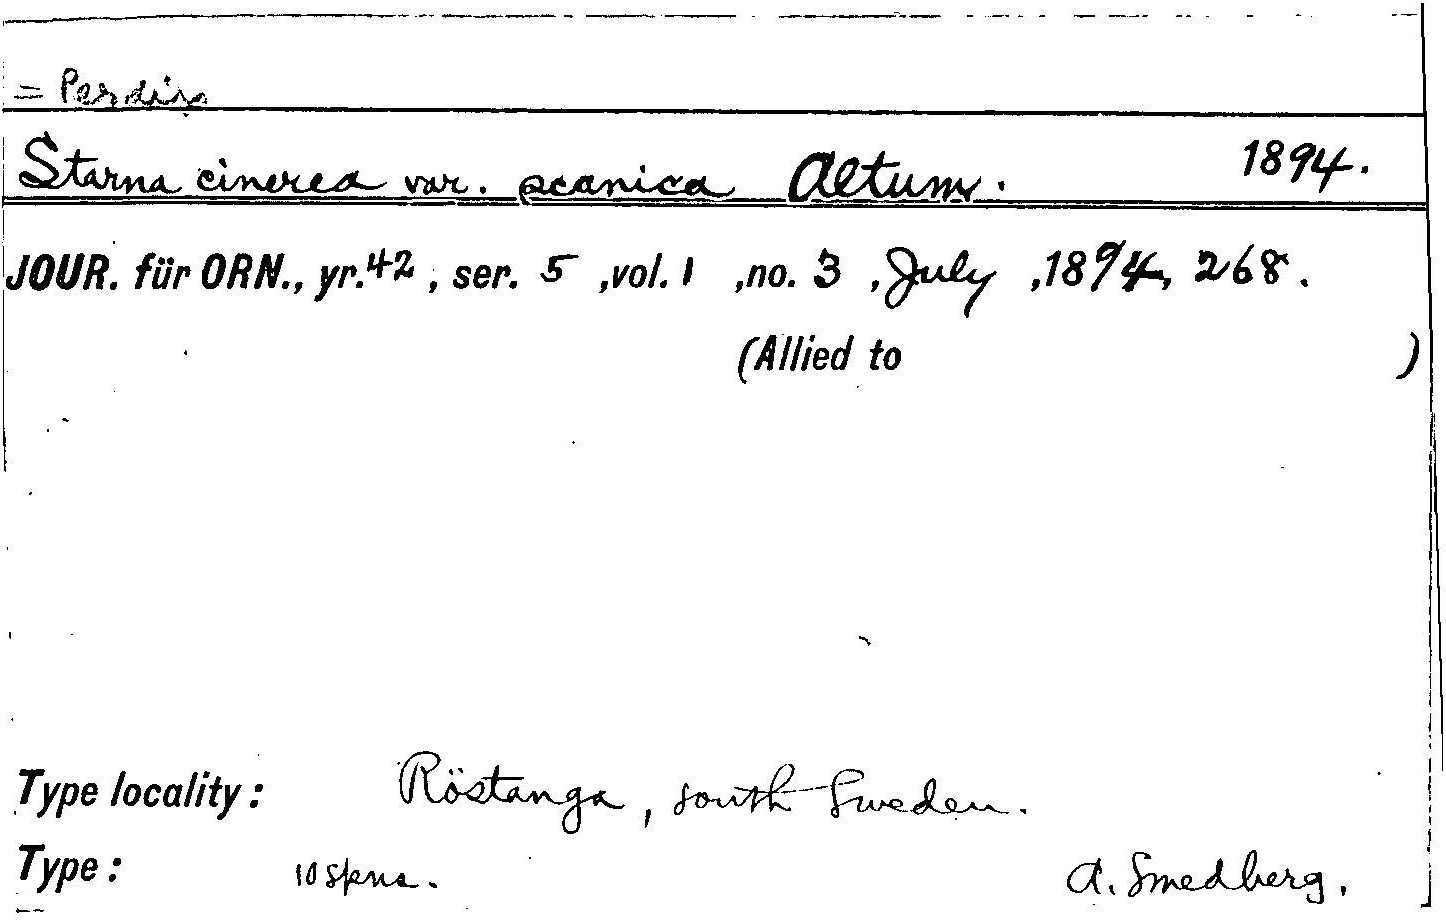 = Perdix
Starna cinerea var. scanica Altum. 1894.
JOUR. für ORN., yr. 42, ser. 5, vol. 1, no. 3, July, 1894, 268.
(Allied to )
Type locality: Röstanga, south Sweden.
Type: 10 spms. A. Smedberg.